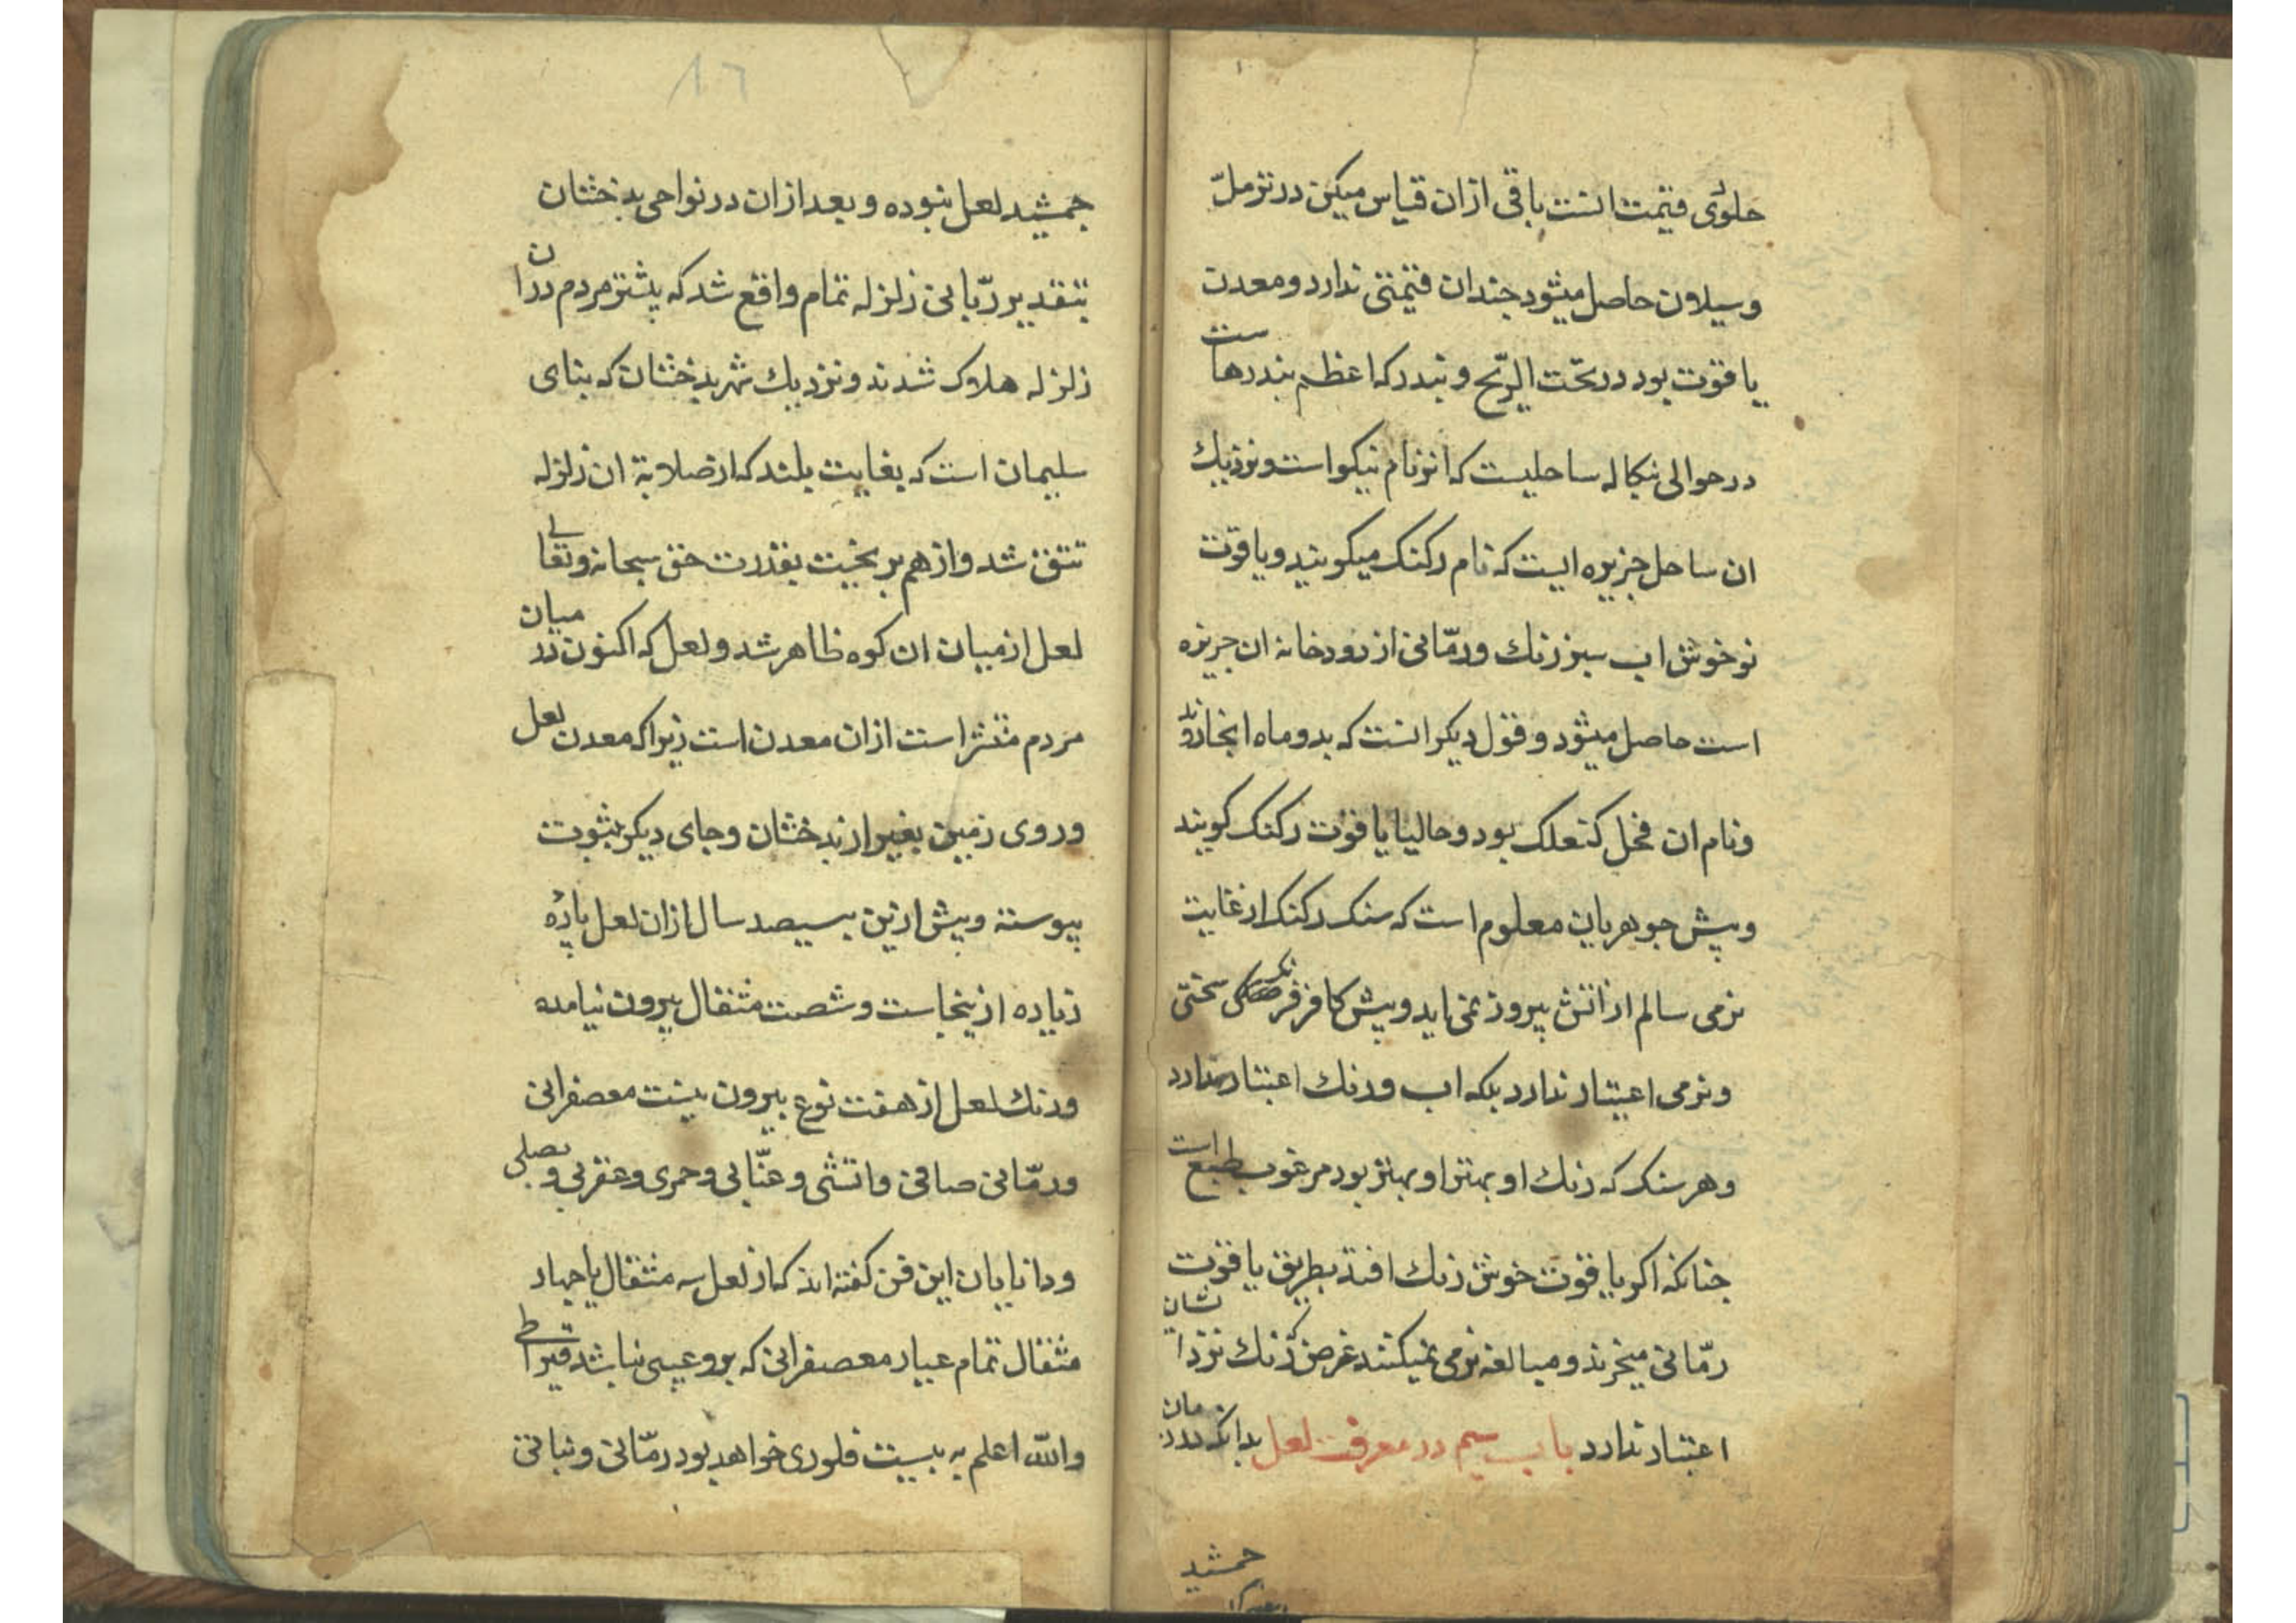 حلوی قیمت انست باقی ازان قیاس میکن در ترمل
وسیلان حاصل میشود جندان قیمتی ندارد ومعدن
یاقوت بود در تحت الریح و بندر که اعظم بندرهاست
در حوالی بنکاله ساحلیست که انرنام نیکو است ونزدیك
ان ساحل جزیره ایست که نام رکنک میکویند ویاقوت
نو خوش اب سبز رنك ورمّانی از رودخانه ان جزیره
است حاصل میشود وقول دیکر انست که بدو ماه انجا روند
ونام ان کنعلک بود وحالیا یاقوت رکنک کویند
وپیش جوهریان معلوم است که سنک رکنک از غایت
نرمی سالم از اتش بیرون نمی اید وپیش کافر فرنک سختی
ونرمی اعتبار ندارد بلکه اب ورنك اعتبار دارد
وهر سنک که رنك او بهتر او بهتر بود مرغوب طبع است
جنانکه اکر یاقوت خوش رنك افتد بطریق یاقوت
رمّانی میخرند ومبالغه نرمی نمیکنند غرض که رنك نزد ایشان
اعتبار ندارد باب سیم در معرفت لعل بدانکه در زمان
جمشید
جمشید لعل نبوده و بعد ازان در نواحی بدخشان
بتقدیر ربّانی زلزله تمام واقع شد که بیشتر مردم دران
زلزله هلاک شدند ونزدیك شهر بدخشان که بنای
سلیمان است که بغایت بلند که از صلابة ان زلزله
شق شد واز هم بریخت بقدرت حق سبحانه وتعالی
لعل از میان ان کوه ظاهر شد ولعل که اکنون در میان
مردم منتشر است ازان معدن است زیرا که معدن لعل
وروی زمین بغیر از بدخشان وجای دیکر بثبوت
پیوسته وپیش ازین بسیصد سال ازان لعل پارهٔ
زیاده از پنجاست وشصت مثقال بیرون نیامده
ورنك لعل از هفت نوع بیرون نیست معصفرانی
ورمّانی صافی واتشی وعنّابی وخمری وعقربی وبصلی
ودانایان این فن کفته اند که از لعل سه مثقال یا چهار
مثقال تمام عیار معصفرانی که برو عیبی نباشد قیراطی
والله اعلم به بیست فلوری خواهد بود رمّانی ونباتی